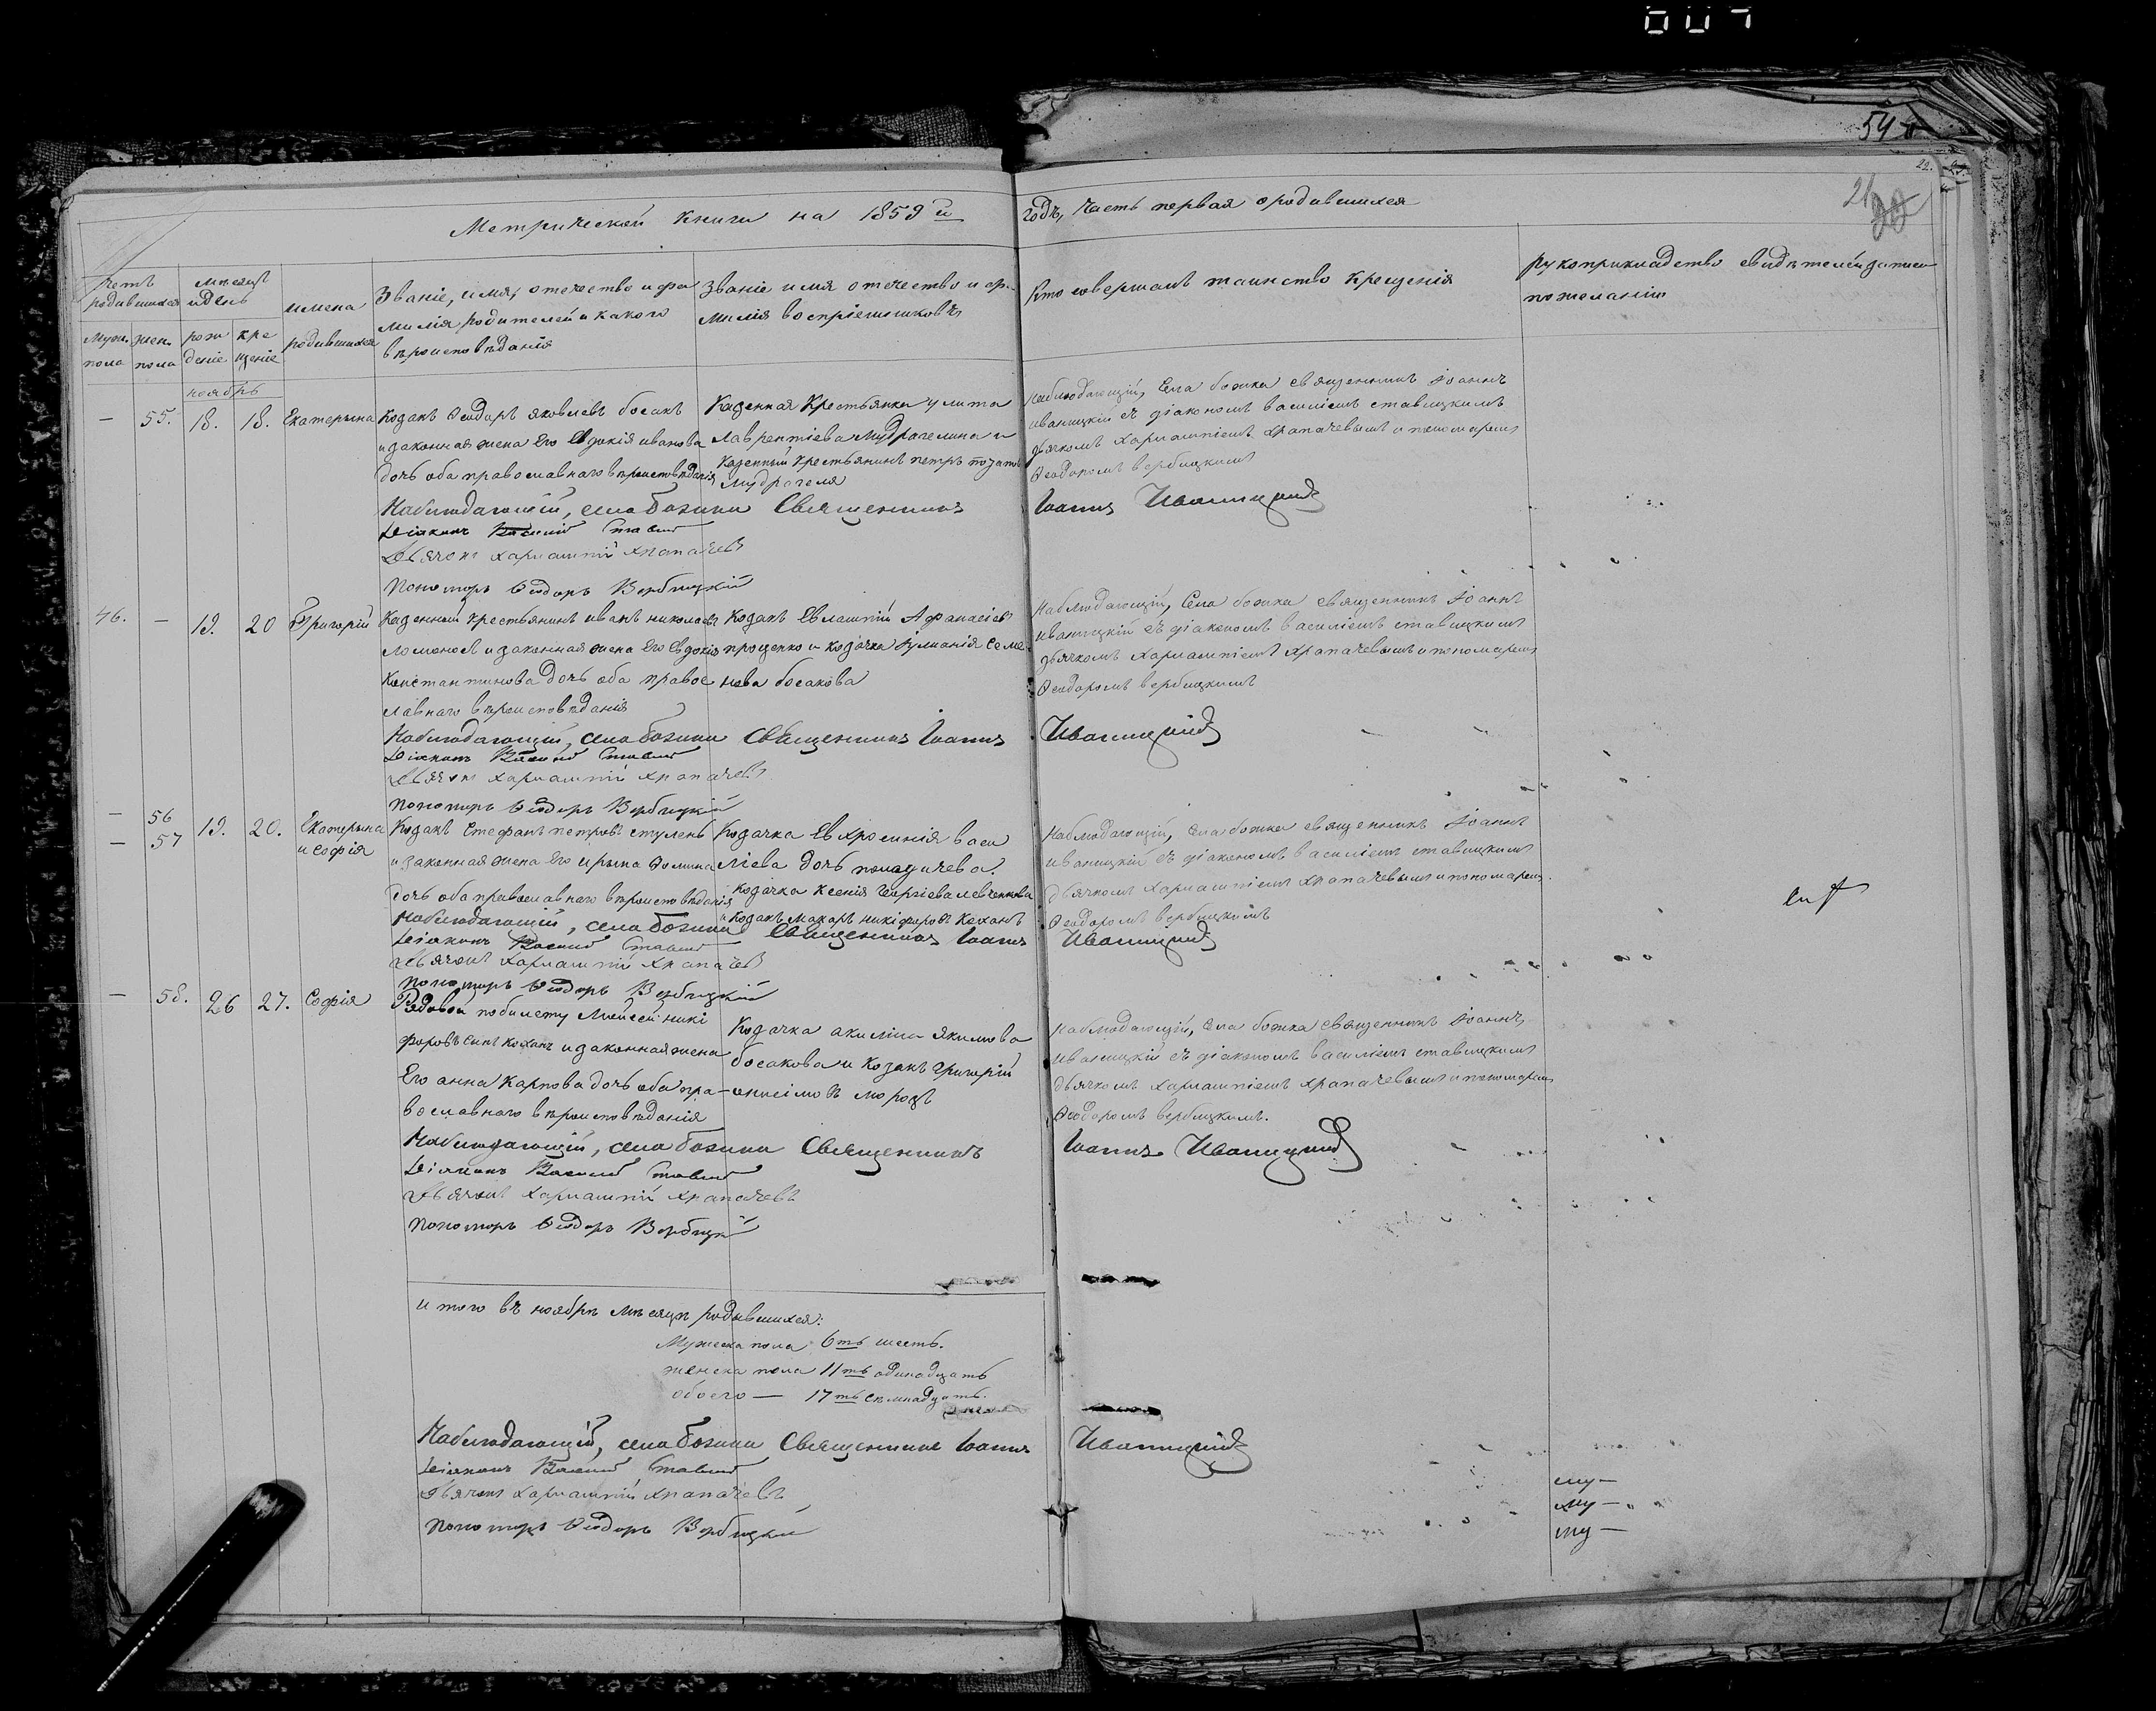 54
22.
21
Метрической книги на 1859й годъ, часть первая о родившихся
Счетъ родившихся
Муж. пола
жен. пола
месяцъ и день
рож деніе
кре щеніе
имена родившихся
Званіе, имя, отечество и фа
милія родителей и какого
вѣроисповѣданія
Званіе имя отечество и фа-
милія воспріемниковъ
Кто совершалъ таинство крещенія
рукоприкладство свидѣтелей записи
по желанію
ноябрь
— 55. 18. 18. Екатерына
Козакъ Феодоръ яковлевъ босакъ
и законная жена Его Евдокія иванова
дочь оба православнаго вѣроисповѣданія
Казенная Крестьянка улита
Лаврентіева Мудрагелина и
Казенный крестьянинъ петръ
Мудрагеля
Наблюдающій, села божка священникъ Іоаннъ
иваницкій съ діакономъ василіемъ ставицкимъ
дьячкомъ харлампіемъ храпачевымъ и пономаремъ
Феодоромъ вербицкимъ
Наблюдающій, села Божки Священникъ Іоаннъ Иваницкій
Діаконъ Василій Ставиц
Дьячокъ харлампій храпачевъ
Пономарь Феодоръ Вербицкій
46. — 19. 20 Григорій
Казенный крестьянинъ иванъ николаевъ
ломоносъ и законная жена Его Евдокія
Константинова дочь оба правос
лавнаго вѣроисповѣданія
Козакъ Евлампій Афанасіевъ
проценко и козачка іуліанія семе-
нова босакова
Наблюдающій, Села божка священникъ Іоаннъ
иваницкій съ діакономъ василіемъ ставицкимъ
дьячкомъ харлампіемъ храпачевымъ и пономаремъ
Феодоромъ вербицкимъ
Наблюдающій, села Божки Священникъ Іоаннъ Иваницкій
Діаконъ Василій Ставиц
Дьячокъ харлампій храпачевъ
Пономарь Феодоръ Вербицкій
— 56
— 57 19. 20. Екатерына
и софія
Козакъ Стефанъ петровъ ступень
и законная жена Его ирына фомина
дочь оба православнаго вѣроисповѣданія
Козачка Евхросинія васи
ліева дочь
Козачка ксенія Георгіева левченкова
и Козакъ макаръ никифоровъ коханъ
Наблюдающій, Села божка священникъ Іоаннъ
иваницкій съ діакономъ василіемъ ставицкимъ
дьячкомъ харлампіемъ храпачевымъ и пономаремъ
Феодоромъ вербицкимъ
Наблюдающій, села Божки Священникъ Іоаннъ Иваницкій
Діаконъ Василій Ставиц
Дьячокъ харлампій храпачевъ
Пономарь Феодоръ Вербицкій
— 58. 26 27. Софія
Рядовой по билету Моисей никі
форовъ сынъ коханъ и законная жена
Его анна карпова дочь оба пра-
вославнаго вѣроисповѣданія
Козачка акилина якимова
босакова и козакъ григорій
онисімовъ морозъ
Наблюдающій, Села божка священникъ Іоаннъ
иваницкій съ діакономъ василіемъ ставицкимъ
дьячкомъ харлампіемъ храпачевымъ и пономаремъ
Феодоромъ вербицкимъ.
Наблюдающій, села Божки Священникъ Іоаннъ Иваницкій
Діаконъ Василій Ставиц
Дьячокъ харлампій храпачевъ
Пономарь Феодоръ Вербицкій
итого въ ноябрѣ мѣсяцѣ родившихся:
Мужеска пола 6ть шесть.
женска пола 11ть одинадцать
обоего — 17ть семнадцать.
Наблюдающій, села Божки Священникъ Іоаннъ Иваницкій
Діаконъ Василій Ставиц
Дьячокъ харлампій храпачевъ
Пономарь Феодоръ Вербицкій